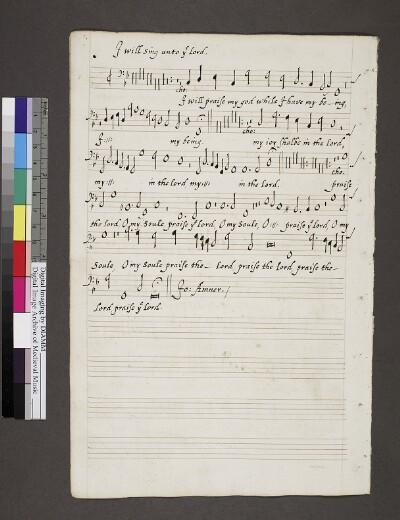 I will sing unto yͤ lord.
cho:
I will praise my god while I have my be- ing,
cho:
I :||: my being. my ioy shalbe in the lord,
cho.
my :||: in the lord my :||: in the lord. praise
the lord O my soule praise yͤ lord, O my soule, O :||: praise yͤ lord, O my
soule, O my soule praise the- Lord, praise the lord praise the-
Jo: Amner./
Lord praise yͤ lord.
Digital Imaging by DIAMM
Digital Image Archive of Medieval Music